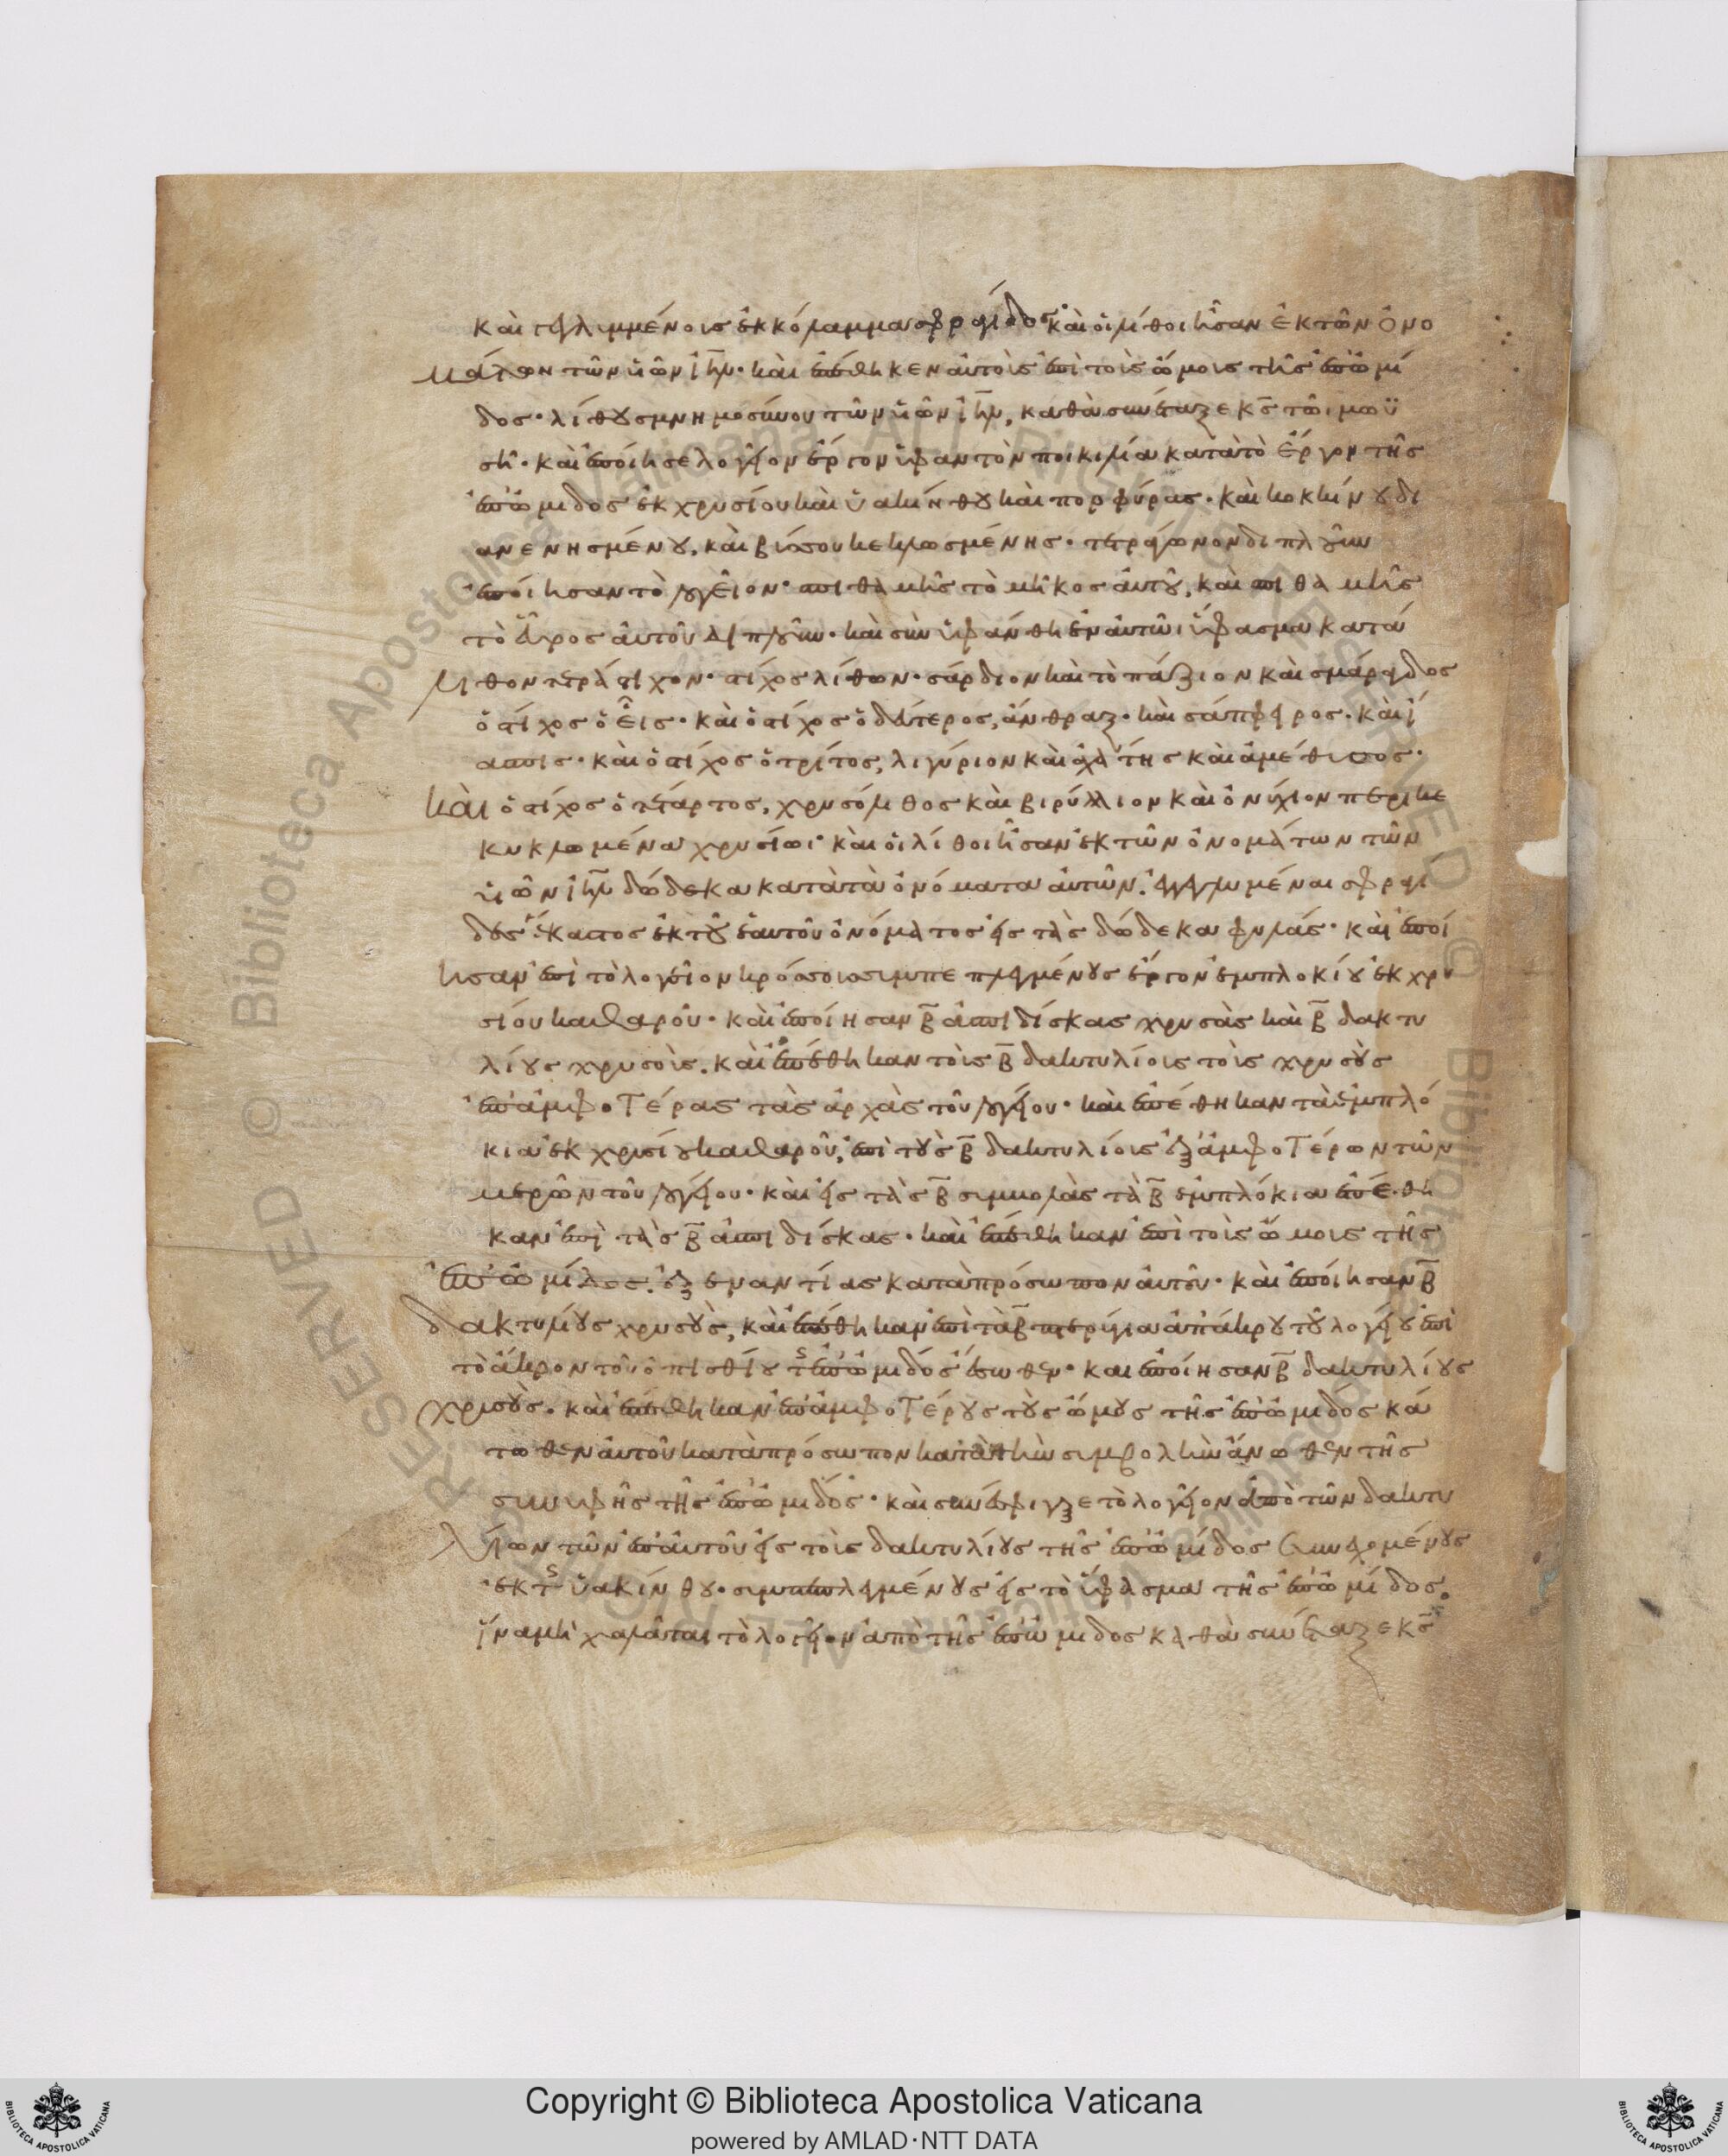 καὶ γεγλιμμένοις ἐκκόλαμμα σφραγίδος· καὶ οἱ λίθοι ἦσαν ἐκ τῶν ὀνο
μάτων τῶν υἱῶν ιηλ· καὶ ἐπέθηκεν αὐτοῖς ἐπὶ τοῖς ὤμοις τῆς ἐπωμί
δος· λίθους μνημοσύνου τῶν υἱῶν ιηλ, καθὰ συνέταξε κς τῶι μωϋ
σῆ· καὶ ἐποίησε λογεῖον ἔργον ὑφαντὸν ποικιλία κατὰ τὸ ἔργον τῆς
ἐπωμιδος ἐκ χρυσίου καὶ ὑακίνθου καὶ πορφύρας· καὶ κοκκίνου δι
ανενησμένου, καὶ βύσσου κεκλωσμένης· τετράγωνον διπλοῦν
ἐποίησαν τὸ λογεῖον· σπιθαμῆς τὸ μῆκος αὐτοῦ, καὶ σπιθαμῆς
τὸ εὖρος αὐτοῦ διπλοῦν· καὶ συνϋφάνθη ἐν αὐτῶι ὕφασμα κατά
λιθον τετράστιχον· στίχος λίθων· σάρδιον καὶ τὸπάζιον καὶ σμάραγδος
ὁ στίχος ὁ εἷς· καὶ ὁ στίχος ὁ δεύτερος, ἄνθραξ· καὶ σάπφειρος· καὶ ἴ
ασπις· καὶ ὁ στίχος ὁ τρίτος, λιγύριον καὶ ἀχάτης καὶ ἀμέθυσος·
καὶ ὁ στίχος ὁ τέταρτος, χρυσόλιθος καὶ βιρύλλιον καὶ ὀνύχιον περικε
κυκλωμένα χρυσίωι· καὶ οἱ λίθοι ἦσαν ἐκ τῶν ὀνομάτων τῶν
υἱῶν ιηλ δώδεκα κατὰ τὰ ὀνόματα αὐτῶν· ἐγγεγλυμέναι σφραγι
δες· ἕκαστος ἐκ τοῦ ἑαυτοῦ ὀνόματος εἰς τὰς δώδεκα φυλάς· καὶ ἐποί
ησαν ἐπὶ τὸ λογεῖον κρόσσους συμπεπλεγμένους ἔργον ἐμπλοκίου ἐκ χρυ
σίου καθαροῦ· καὶ ἐποίησαν β ἀσπιδίσκας χρυσὰς καὶ β δακτυ
λίους χρυσοὶς. καὶ ἐπέθηκαν τοὶς β δακτυλίοις τοὶς χρυσοὺς
ἐπ' ἀμφοτέρας τὰς ἀρχὰς τοῦ λογείου· καὶ ἐπέθηκαν τὰ ἐμπλό
κια ἐκ χρυσίου καθαροῦ, ἐπὶ τοὺς β δακτυλίοις ἐξ ἀμφοτέρων τῶν
μερῶν τοῦ λογείου· καὶ εἰς τὰς β συμβολὰς τὰ β ἐμπλόκια ἐπέθη
καν ἐπὶ τὰς β ἀσπιδίσκας· καὶ ἐπέθηκαν ἐπὶ τοὶς ὤμοις τῆς
ἐπωμίδος· ἐξ ἐναντίας κατὰ πρόσωπον αὐτῶν· καὶ ἐποίησαν β
δακτυλίους χρυσοὺς, καὶ ἐπέθηκαν ἐπὶ τὰ β πτερύγια ἀπ' ἄκρου τοῦ λογείου ἐπὶ
τὸ ἄκρον τοῦ ὀπισθίου τῆς ἐπωμιδός ἔσωθεν· και ἐποίησαν β δακτυλίους
χρυσοὺς. καὶ ἐπέθηκαν ἐπ' ἀμφοτέρους τοὺς ὤμους τῆς ἐπωμιδος κά
τωθεν αὐτοῦ κατὰ πρόσωπον κατὰ τὴν συμβολὴν ἄνωθεν τῆς
συνυφῆς τῆς ἐπωμιδός· καὶ συνέσφιγξε τὸ λογεῖον ἀπὸ τῶν δακτυ
λίων τῶν ἐπ' αὐτοῦ εἰς τοὶς δακτυλίους τῆς ἐπωμίδος συνεχομένους
ἐκ τῆς ὑακίνθου· συμπεπλεγμένους εἰς τὸ ὕφασμα τῆς ἐπωμίδος·
ἵνα μὴ χαλᾶται τὸ λογεῖον ἀπὸ τῆς ἐπωμιδος καθὰ συνέταξε κς
Copyright © Biblioteca Apostolica Vaticana
powered by AMLAD·NTT DATA